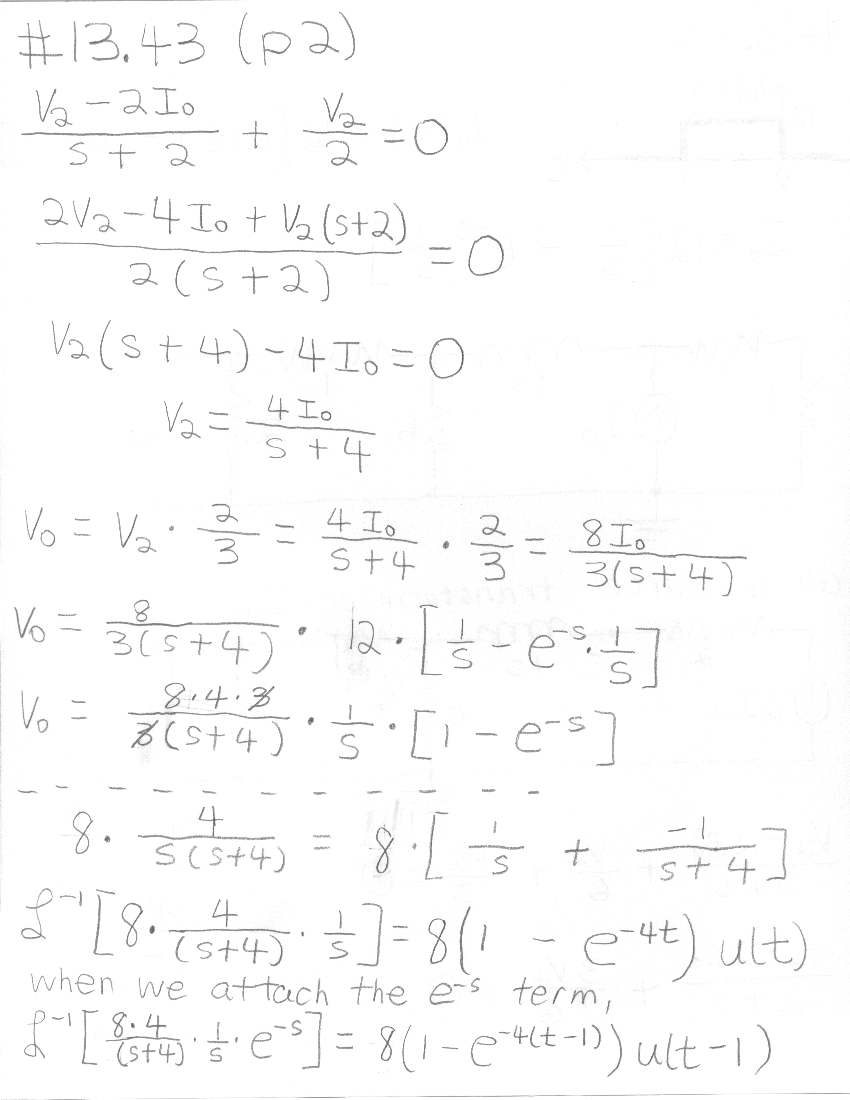 #13.43 (p2)
(V₂ - 2I₀)/(s + 2) + V₂/2 = 0
(2V₂ - 4I₀ + V₂(s+2))/(2(s+2)) = 0
V₂(s + 4) - 4I₀ = 0
V₂ = 4I₀/(s + 4)
V₀ = V₂ · 2/3 = 4I₀/(s+4) · 2/3 = 8I₀/(3(s+4))
V₀ = 8/(3(s+4)) · 12 · [1/s - e^(-s) · 1/s]
V₀ = (8·4·3)/(3(s+4)) · 1/s · [1 - e^(-s)]
- - - - - - - - - - - -
8 · 4/(s(s+4)) = 8 · [1/s + (-1)/(s+4)]
ℒ⁻¹[8 · 4/(s+4) · 1/s] = 8(1 - e^(-4t)) u(t)
when we attach the e^(-s) term,
ℒ⁻¹[(8·4)/(s+4) · 1/s · e^(-s)] = 8(1 - e^(-4(t-1))) u(t-1)